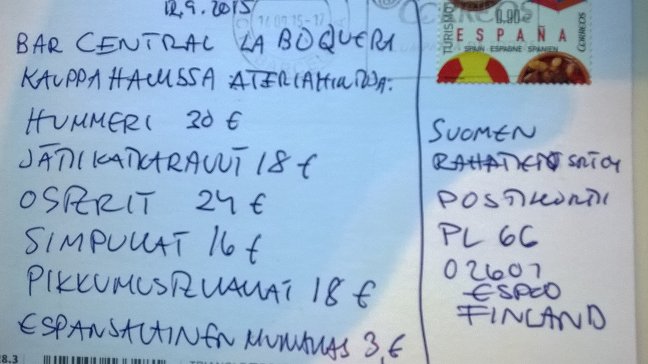 12.9.2015
BAR CENTRAL LA BOQUERA
KAUPPAHALLISSA ATERIAHINTOJA:
HUMMERI 30 €
JÄTTIKATKARAVUT 18 €
OSTERIT 24 €
SIMPUKAT 16 €
PIKKUMUSTEKALAT 18 €
ESPANJALAINEN MUNAKAS 3,€
28.3
14 09 15-17
CORREOS
TURISMO
0,90€
ESPAÑA
SPAIN ESPAGNE SPANIEN
CORREOS
SUOMEN
POSTIKORTTI
PL 66
02601
ESPOO
FINLAND